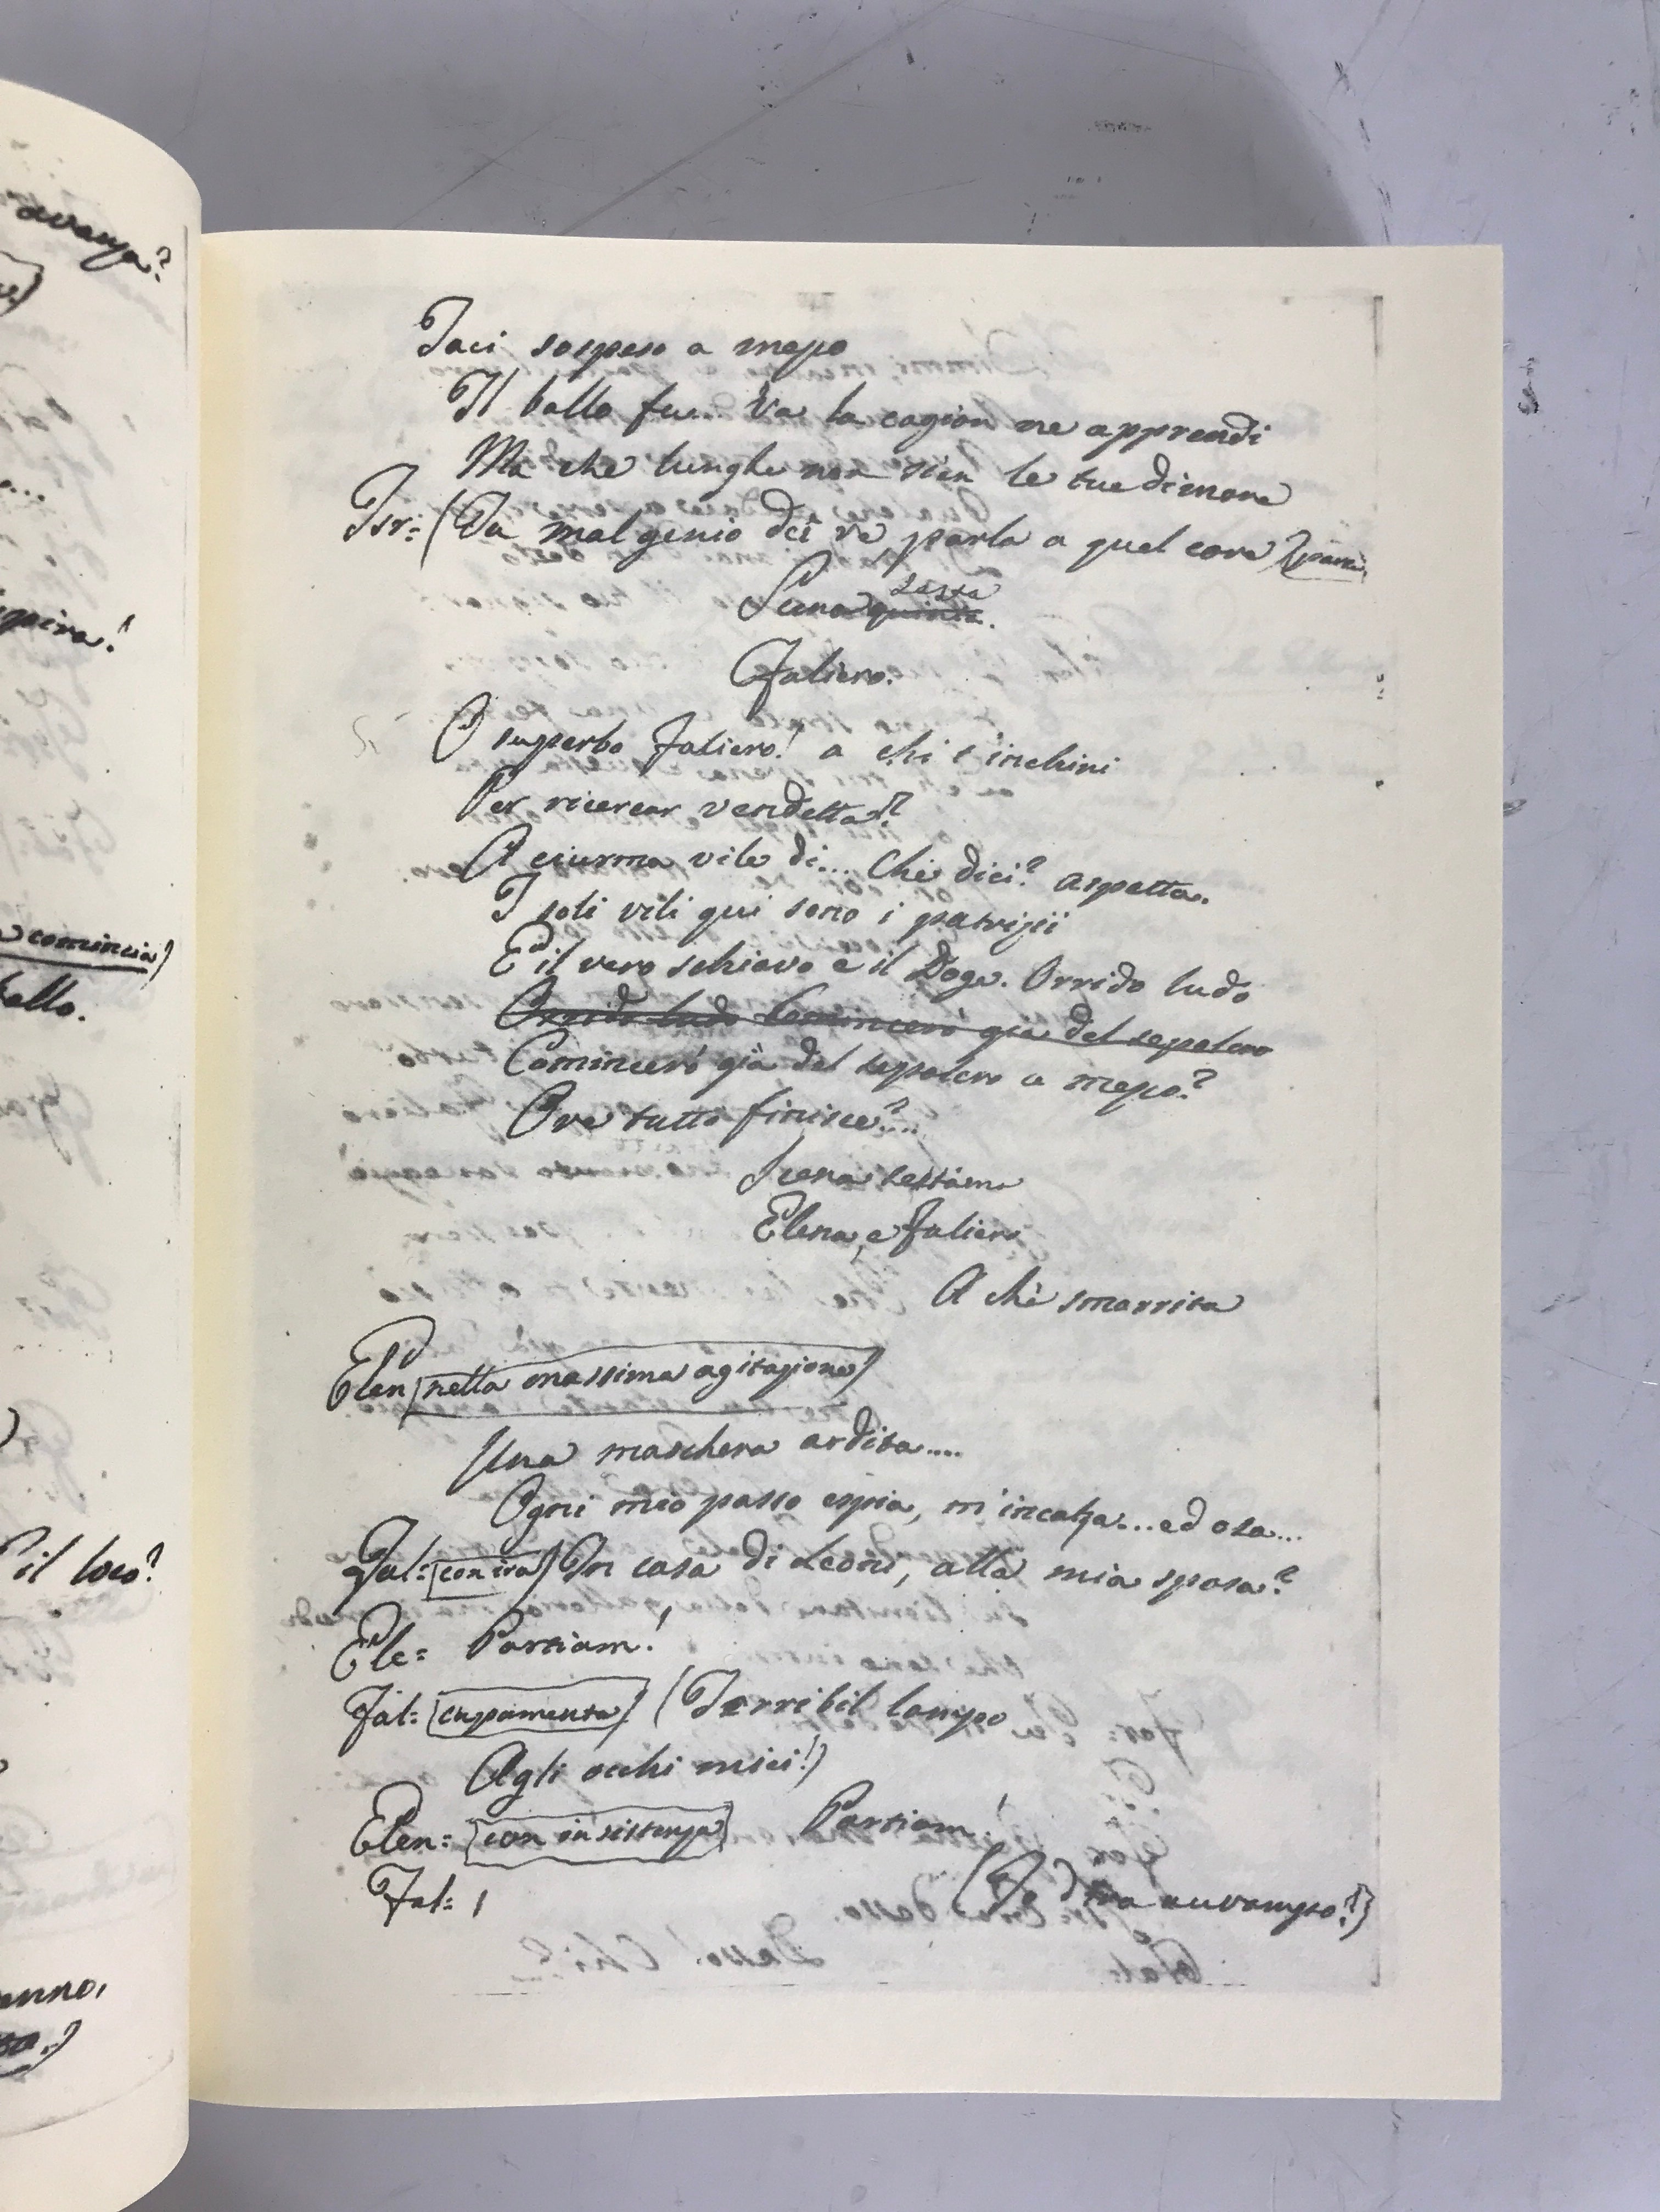 avanza?
quira!
comincia)
ballo.
il loco?
enno,
Taci sospeso a mezzo
Il ballo fu... Va la cagion ne apprendi
Ma che lunghe non sien le tue dimore
Isr: (Tu mal genio dei re, parla a quel core) (parte)
Scena quinta sesta
Faliero.
O superbo Faliero! a chi t'inchini
Per ricercar vendetta!?
A ciurma vile di... Che dici? aspetta.
I soli vili qui sono i patrizii
E il vero schiavo è il Doge. Orrido ludo
Orrido ludo Comincerò già del sepolcro
Comincerò già del sepolcro a mezzo?
Ove tutto finisce?...
Scena settima
Elena, e Faliero
A chè smarrita
Elen (nella massima agitazione)
Una maschera ardita....
Ogni mio passo espia, m'incalza... ed osa...
Fal: (con ira) In casa di Leoni, alla mia sposa?
Ele= Partiam!
Fal: (cupamente) (Terribil lampo
Agli occhi miei!)
Elen= (con insistenza) Partiam!
Fal= (Io d'ira avvampo!)